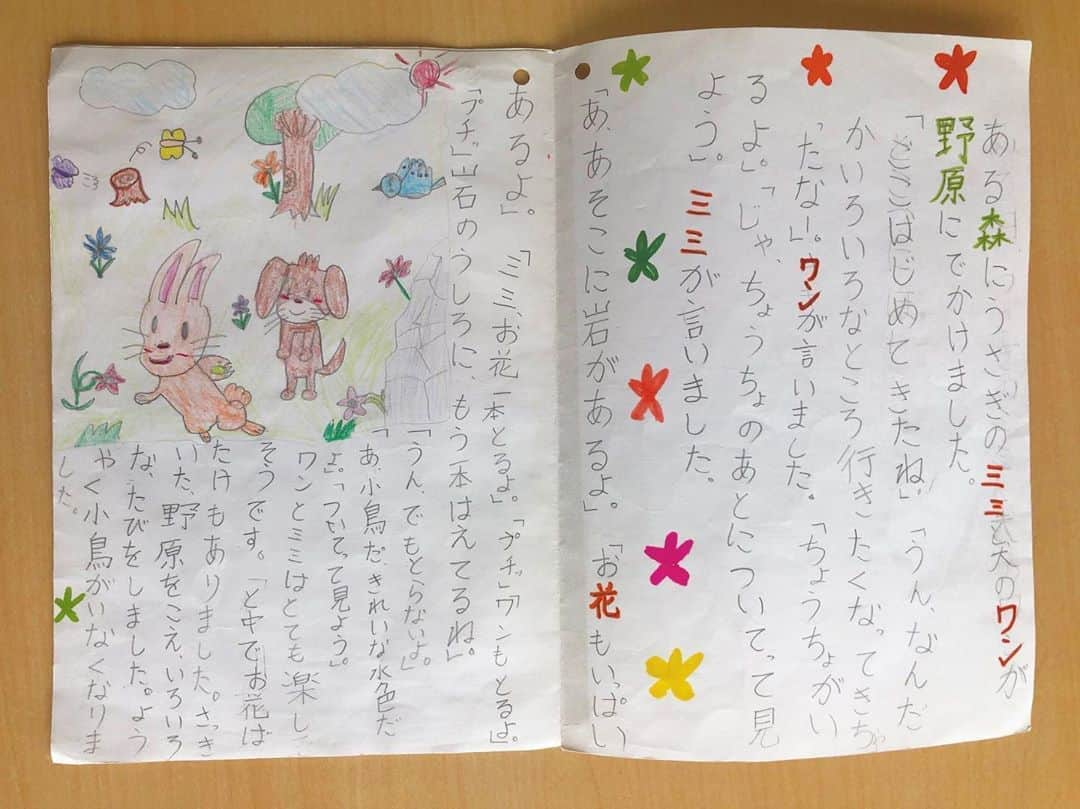 ある森にうさぎのミミと犬のワンが
野原にでかけました。
「ここはじめてきたね。」「うん、なんだ
かいろいろなところ行きたくなってきちゃ
ったなー。」ワンが言いました。「ちょうちょがい
るよ。」「じゃ、ちょうちょのあとについてって見
よう。」ミミが言いました。
「あ、あそこに岩があるよ。」「お花もいっぱい
あるよ。」「ミミ、お花一本とるよ。」「プチッ」「ワンもとるよ。」
「プチッ」岩のうしろに、もう一本はえてるね。」
「うん、でもとらないよ。」
「あ、小鳥だ、きれいな水色だ
よ。」「ついてって見よう。」
ワンとミミはとても楽し
そうです。「と中でお花ば
たけもありました。さっき
いた、野原をこえ、いろいろ
な、たびをしました。よう
やく小鳥がいなくなりま
した。